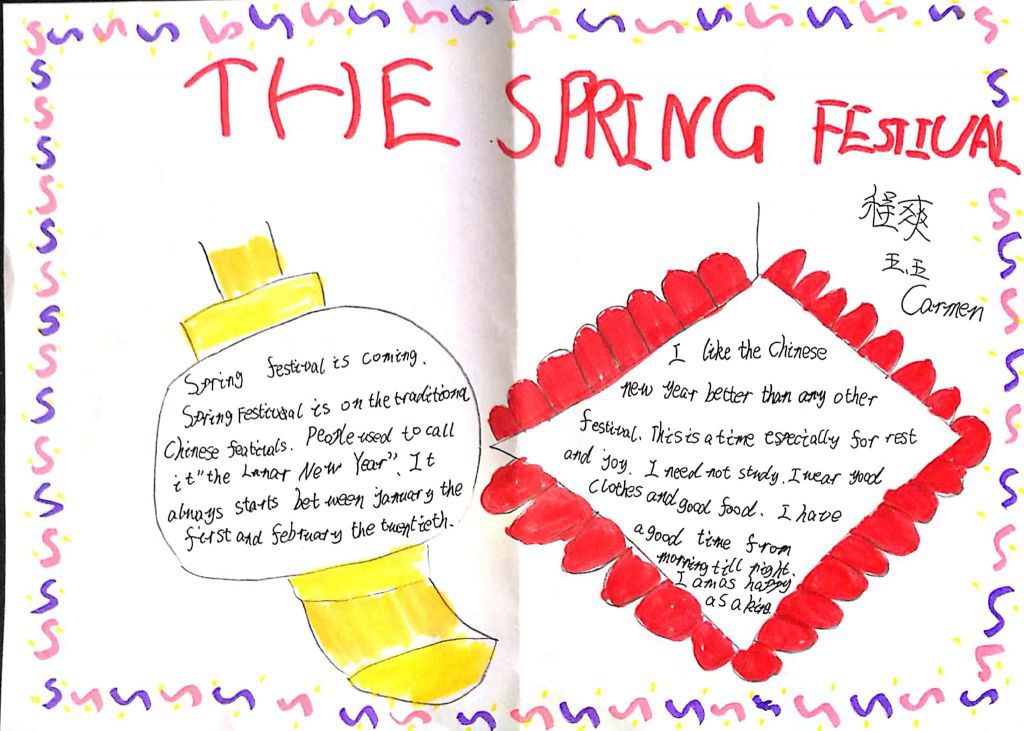 THE SPRING FESTIVAL
程爽
五.五
Carmen
Spring festival is coming.
Spring Festivusal is on the traditional
Chinese feativals. People used to call
it "the Lanar New Year". It
always starts between january the
first and february the twentieth.
I like the Chinese
new year better than any other
festival. This is a time especially for rest
and joy. I need not study. I wear good
clothes and good food. I have
a good time from
morning till night.
I am as happy
as a king.